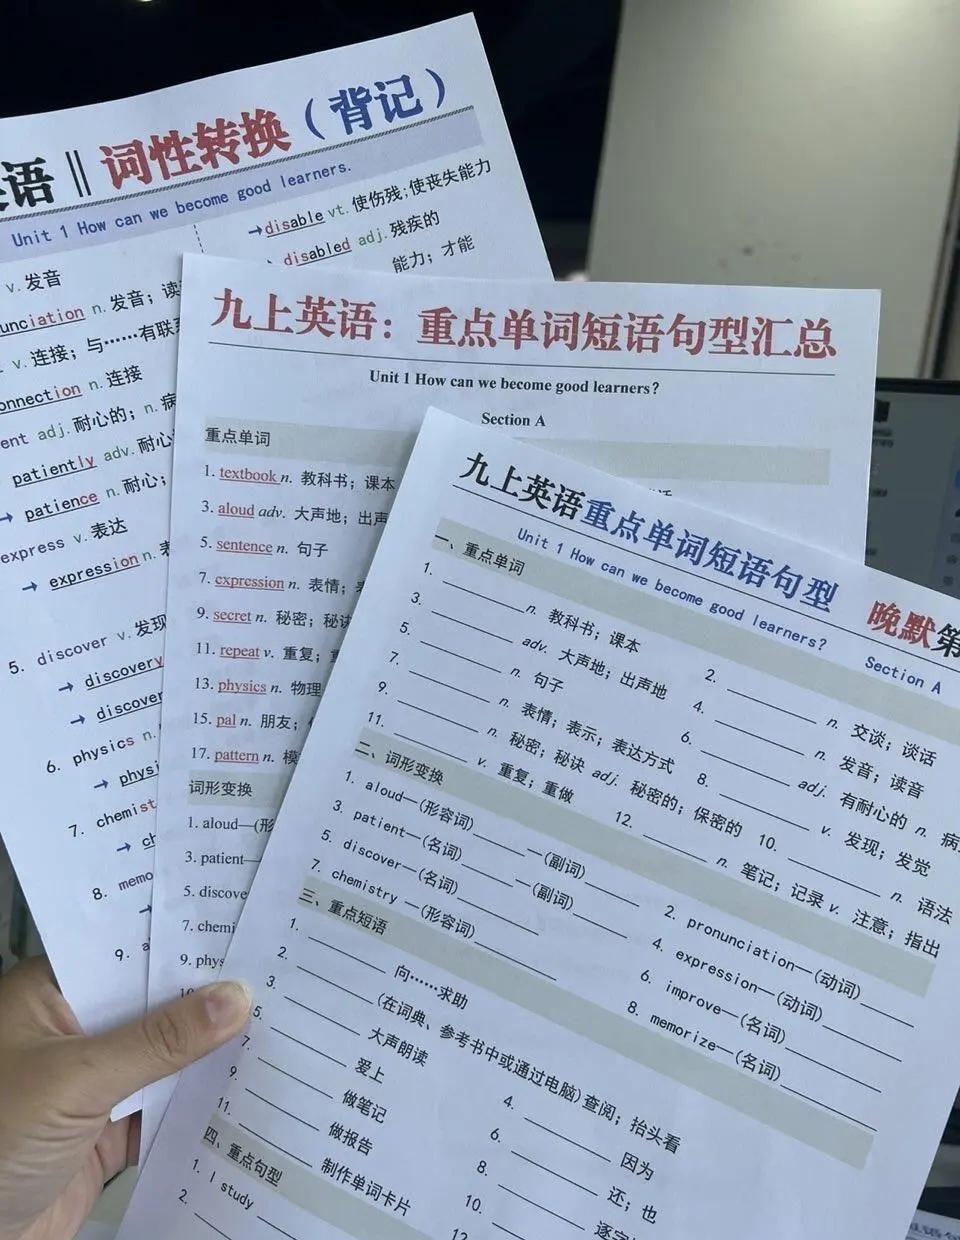 语 || 词性转换（背记）
Unit 1 How can we become good learners.
v. 发音
unciation n. 发音；读
v. 连接；与……有联
onnection n. 连接
ent adj. 耐心的；n. 病
patiently adv. 耐心
→ patience n. 耐心；
express v. 表达
→ expression n.
5. discover v. 发现
→ discovery
→ discover
6. physics n.
→ physi
7. chemist
→ ch
8. memo
→
9. a
→disable vt. 使伤残；使丧失能力
disabled adj. 残疾的
能力；才能
九上英语：重点单词短语句型汇总
Unit 1 How can we become good learners?
Section A
重点单词
1. textbook n. 教科书；课本
3. aloud adv. 大声地；出声
5. sentence n. 句子
7. expression n. 表情；
9. secret n. 秘密；秘诀
11. repeat v. 重复；
13. physics n. 物理
15. pal n. 朋友；
17. pattern n. 模
词形变换
1. aloud—(形
3. patient—
5. discove
7. chemi
9. phys
10
九上英语重点单词短语句型 晚默第
Unit 1 How can we become good learners? Section A
一、重点单词
1. ________ n. 教科书；课本
2. ________ n. 交谈；谈话
3. ________ adv. 大声地；出声地
4. ________ n. 发音；读音
5. ________ n. 句子
6. ________ adj. 有耐心的 n. 病
7. ________ n. 表情；表示；表达方式
8. ________ v. 发现；发觉
9. ________ n. 秘密；秘诀 adj. 秘密的；保密的
10. ________ n. 语法
11. ________ v. 重复；重做
12. ________ n. 笔记；记录 v. 注意；指出
二、词形变换
1. aloud—(形容词)________—(副词)________
2. pronunciation—(动词)________
3. patient—(名词)________—(副词)________
4. expression—(动词)________
5. discover—(名词)________
6. improve—(名词)________
7. chemistry —(形容词)________
8. memorize—(名词)________
三、重点短语
1. ________ 向……求助
2. ________ (在词典、参考书中或通过电脑)查阅；抬头看
3. ________ 大声朗读
4. ________ 因为
5. ________ 爱上
6. ________ 还；也
7. ________ 做笔记
8. ________ 逐字
9. ________ 做报告
10. ________
11. ________ 制作单词卡片
12
四、重点句型
1. I study ________
2. ________